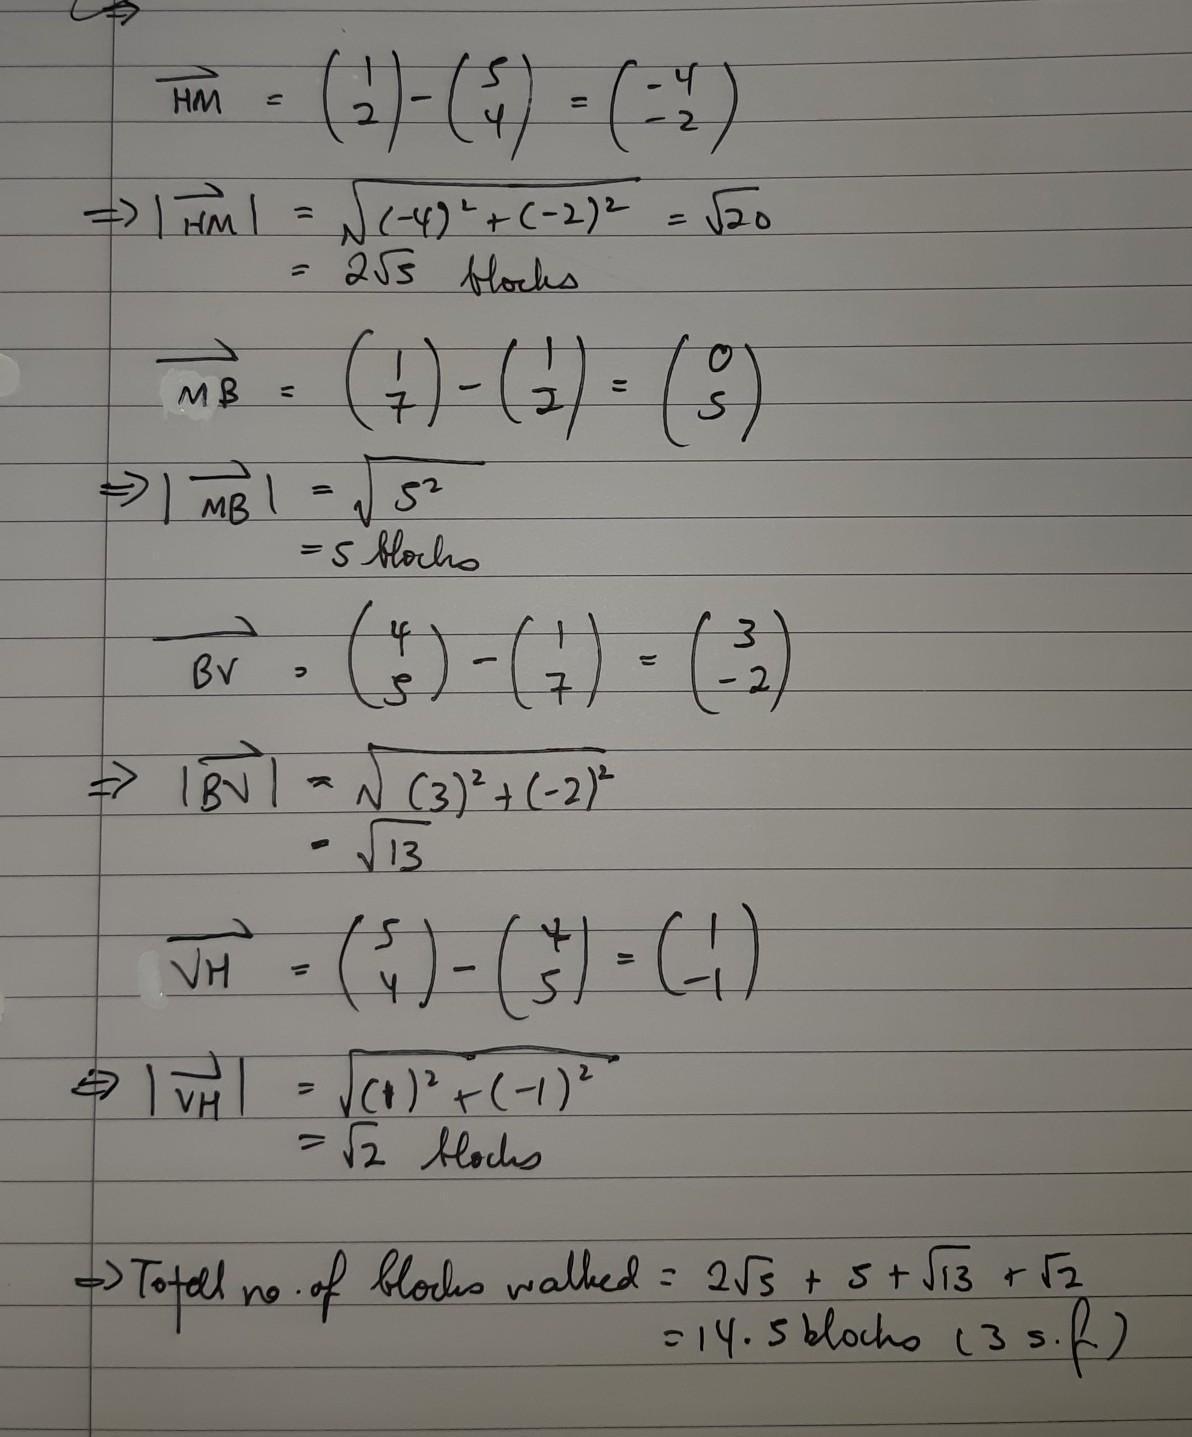 ⇒
HM⃗ = (1 2) - (5 4) = (-4 -2)
⇒ |HM⃗| = √((-4)² + (-2)²) = √20
= 2√5 blocks
MB⃗ = (1 7) - (1 2) = (0 5)
⇒ |MB⃗| = √5²
= 5 blocks
BV⃗ = (4 5) - (1 7) = (3 -2)
⇒ |BV⃗| = √((3)² + (-2)²)
= √13
VH⃗ = (5 4) - (4 5) = (1 -1)
⇒ |VH⃗| = √((1)² + (-1)²)
= √2 blocks
⇒ Total no. of blocks walked = 2√5 + 5 + √13 + √2
= 14.5 blocks (3 s.f)